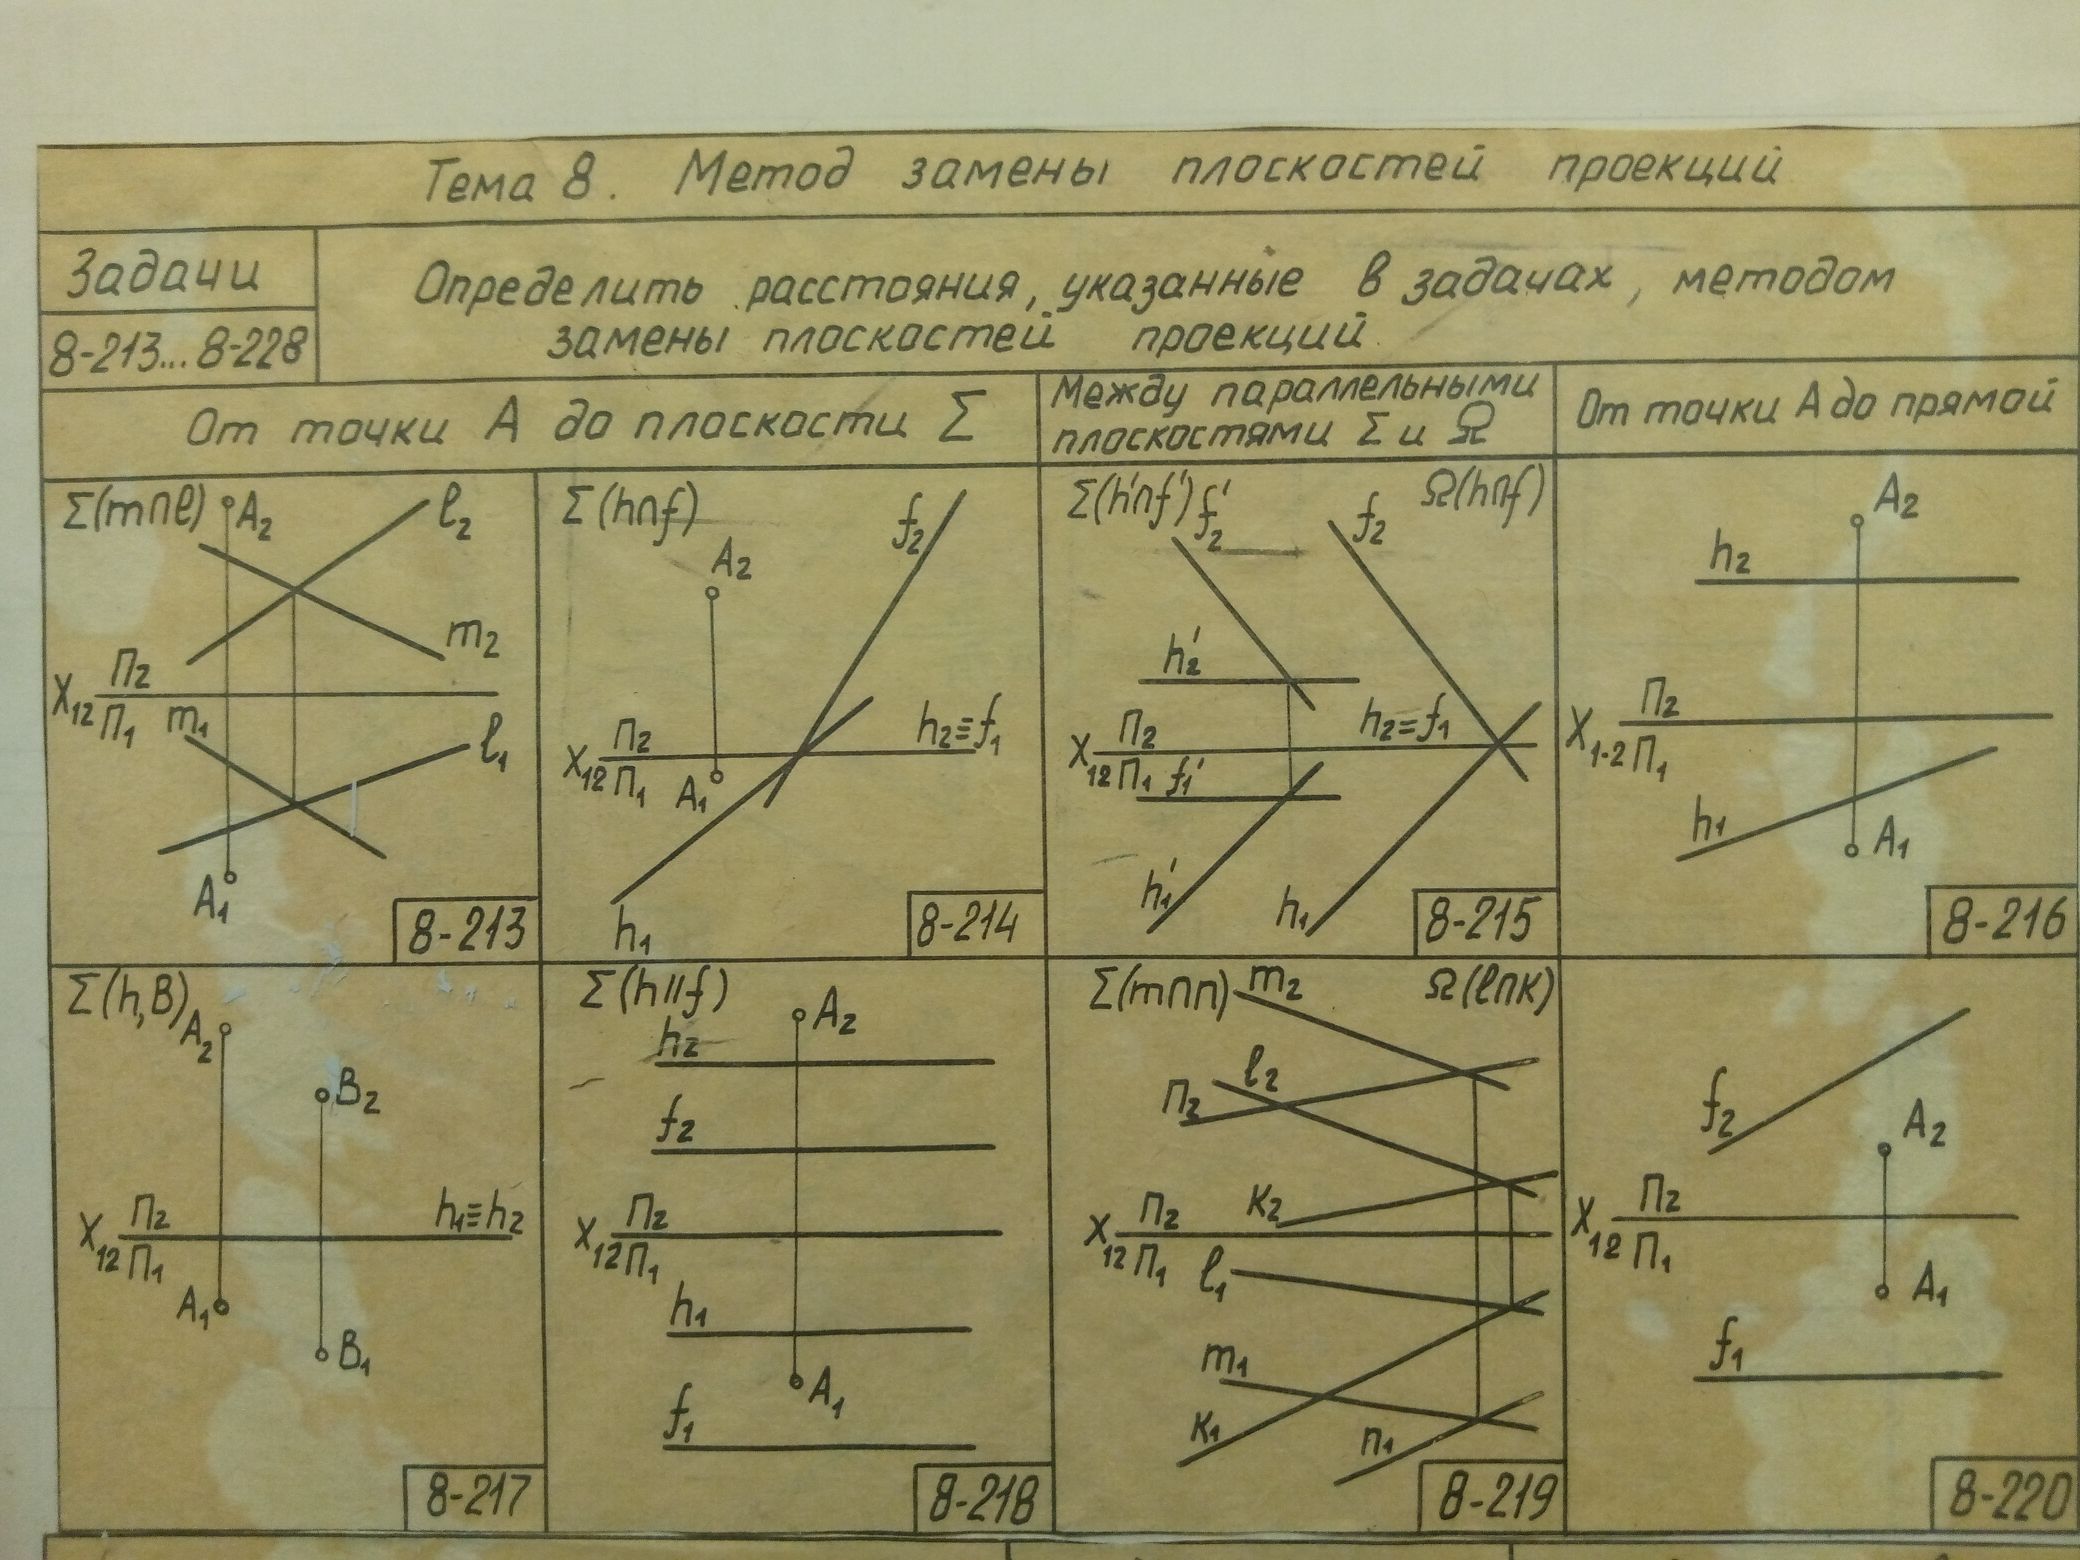 Тема 8. Метод замены плоскостей проекций
Задачи
8-213...8-228
Определить расстояния, указанные в задачах, методом
замены плоскостей проекций.
От точки А до плоскости Σ
Между параллельными
плоскостями Σ и Ω
От точки А до прямой
Σ(m∩l)
A₂
l₂
m₂
X₁₂ П₂
П₁
m₁
l₁
A₁
8-213
Σ(h∩f)
f₂
A₂
X₁₂ П₂
П₁
h₂≡f₁
A₁
h₁
8-214
Σ(h'∩f')
f₂'
f₂
Ω(h∩f)
h₂'
X₁₂ П₂
П₁
h₂=f₁
f₁'
h₁'
h₁
8-215
A₂
h₂
X₁.₂ П₂
П₁
h₁
A₁
8-216
Σ(h,B)
A₂
B₂
X₁₂ П₂
П₁
h₁≡h₂
A₁
B₁
8-217
Σ(h∥f)
A₂
h₂
f₂
X₁₂ П₂
П₁
h₁
A₁
f₁
8-218
Σ(m∩n)
m₂
Ω(l∩к)
l₂
п₂
к₂
X₁₂ П₂
П₁
l₁
m₁
к₁
п₁
8-219
f₂
A₂
X₁₂ П₂
П₁
A₁
f₁
8-220